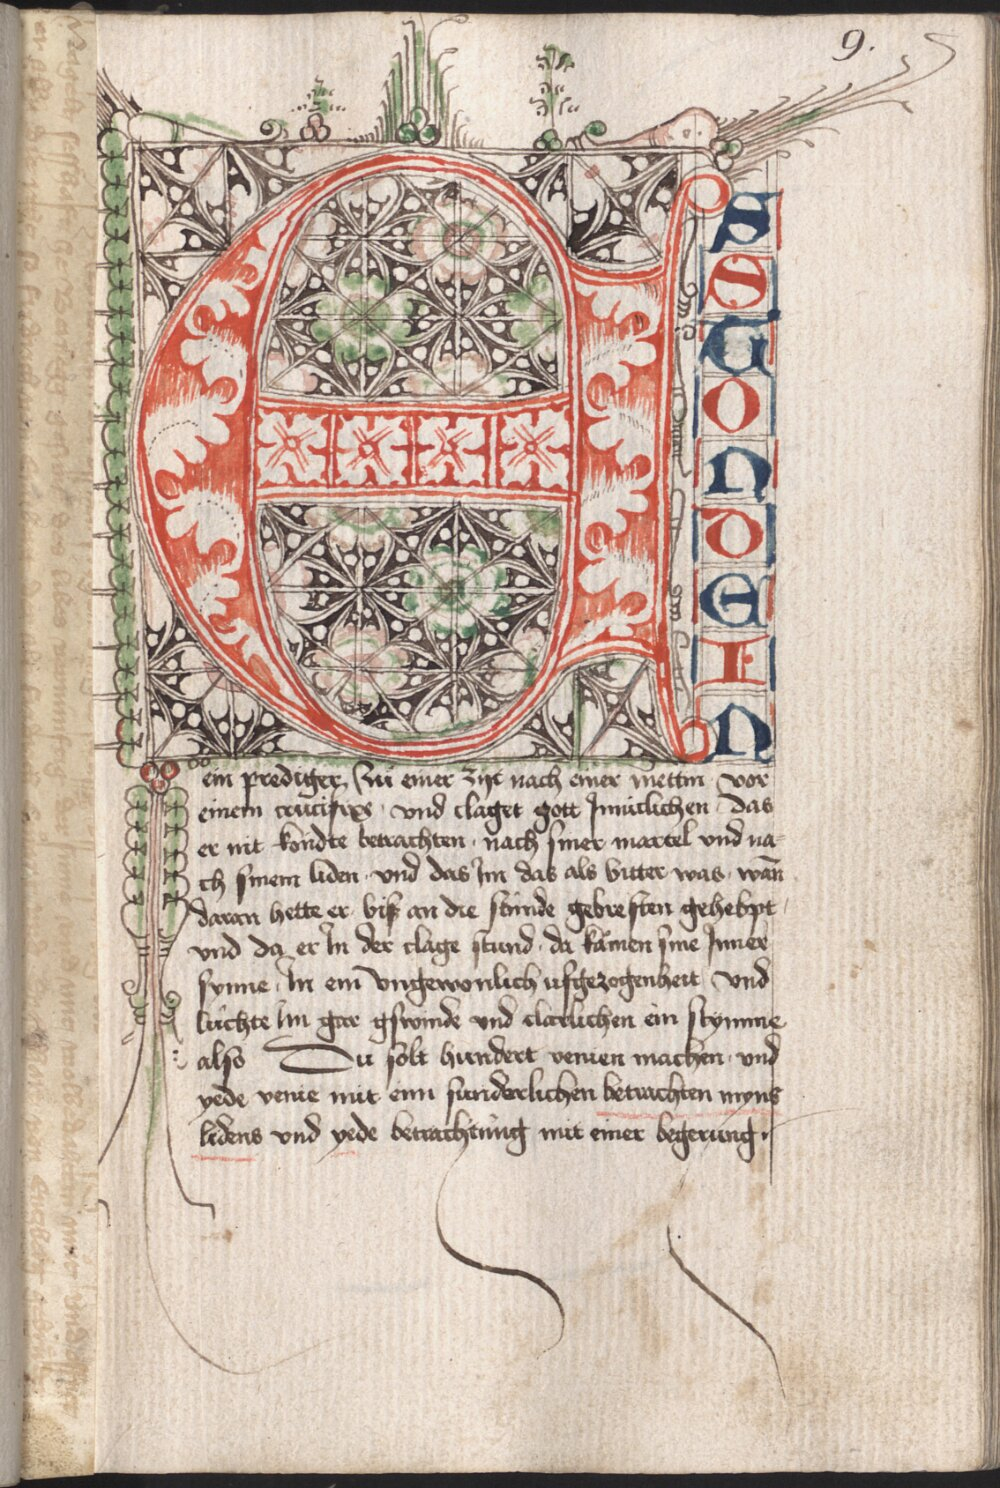 9.
E
S
S
G
O
N
D
E
I
N
ein prediger, Zu einer Zyt nach einer mettin · vor
einem crucifixs · vnd claget gott Jnniclichen · Das
er nit kondte betrachten · nach siner martel vnd na=
ch sinem liden · vnd das Jm das als bitter was · wan̄
daran hette er · bisz an die stunde gebresten gehebpt ·
vnd da er Jn der clage stund · da kamen sine Jnner
synne · Jn ein Vngewonlich ufgezogenheit Vnd
luchte Jm gar gswinde vnd clarlichen ein stymme
alsо Du solt hundert venien machen · vnd
yede venie mit einn sunderlichen betrachten myns
lidens vnd yede betrachtung mit einer begerung ·